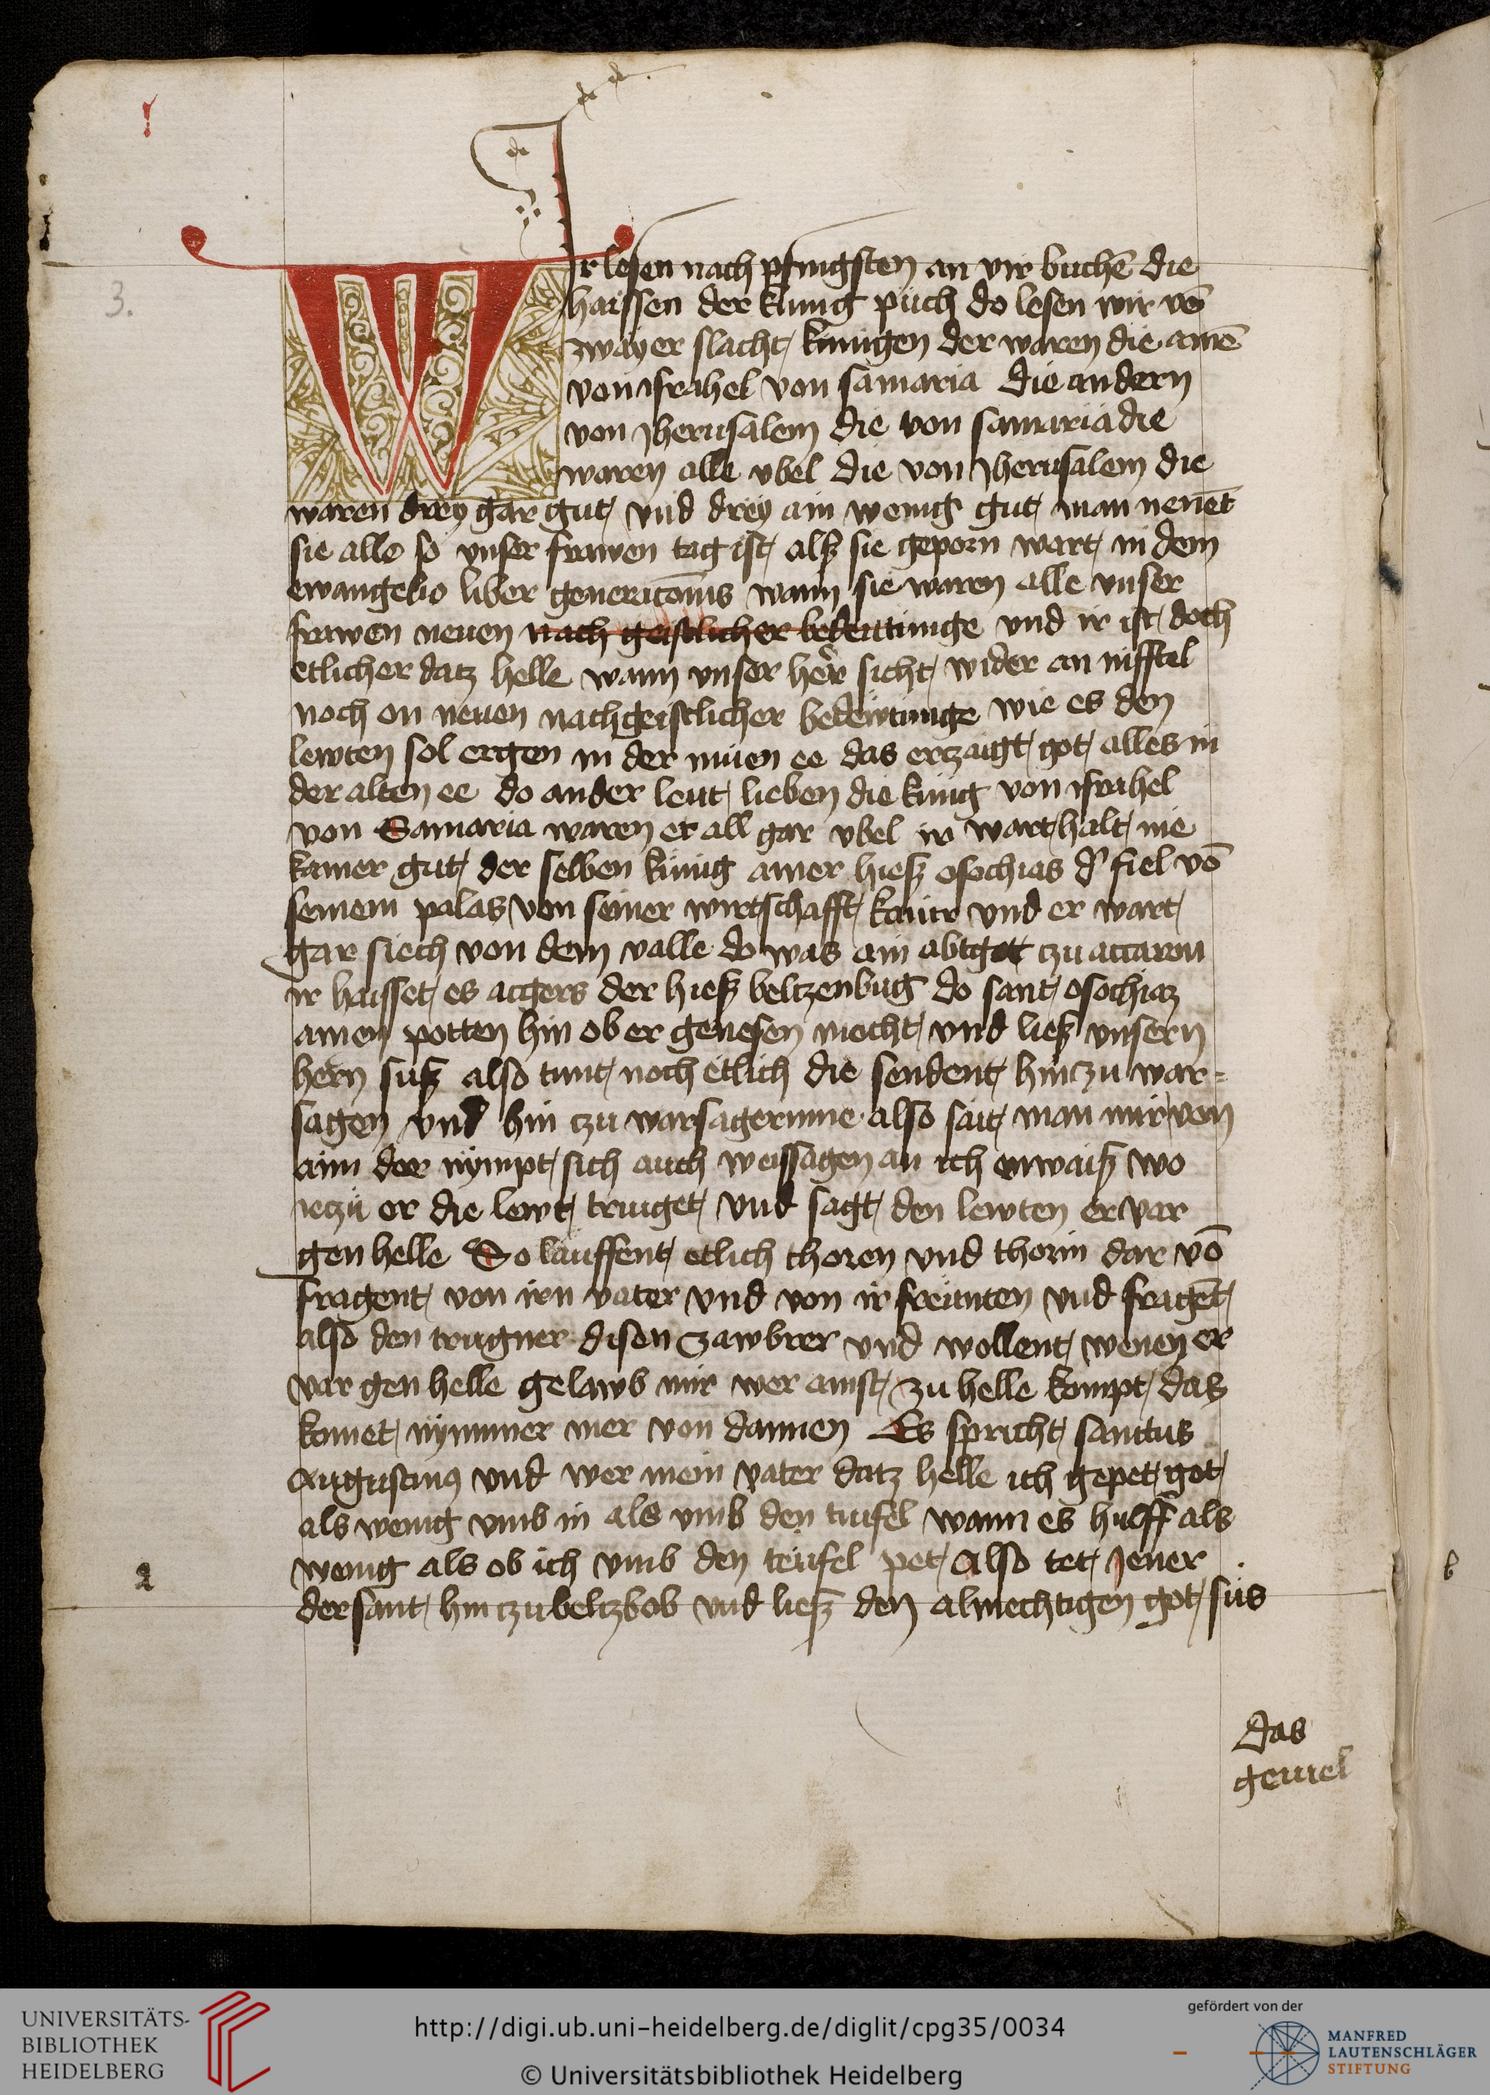 3.
WIr lesen nach pfingsten an vir buchē die
haissen der kunig puch do lesen wir vō
zwayer slacht kunigen der waren die ainē
von israhel von samaria die andern
von Jherusalem die von samaria die
waren alle vbel die von Jherusalem die
waren drey gar gut vnd drey ain wenig gut man nenēt
sie alle so vnser frawen tag ist als sie geporn wart in dem
ewangelio liber generacōnis wann sie waren alle vnser
frawen nenen nach geistlicher bedeutunge vnd ir ist doch
etlicher datz helle wann vnser her sicht wider an nifftel
noch on nenen nach geistlicher bedewtunge wie es den
lewten sol ergen in der niuen ee das ertzaigt got alles in
der alten ee do ander leut lieben die kunig von israhel
von Samaria waren et all gar vbel ir wart halt nie
kainer gut der selben kunig ainer hiesz osochias d' fiel vō
seinem palas von seiner wirtschafft kaur vnd er wart
gar siech von dem valle do was ain abtgot tzu accaron
ir haisset es acgers der hiesz beltzenbug do sant osochiaz
ainen potten hin ob er genesen mocht vnd liesz vnsern
hern susz also tunt noch etlich die sendent hin zu war=
sagen vnd hin tzu warsagerinne also sait man mir von
aim der nympt sich auch weissagen an ich enwaisz wo
ietzu er die lewt truiget vnd sagt den lewten er var
gen helle So lauffent etlich thoren vnd thorin dar vō
fragent von irn vater vnd von ir freunten vnd fragēt
also den trugner disen zawbrer vnd wollent wenen er
var gen helle gelawb mir wer ainst zu helle kompt das
komet nymmer mer von dannen Es spricht sanctus
Augustinus vnd wer mein vater datz helle ich gepet got
als wenig vmb in als vmb den tiufel wann es hulff als
wenig als ob ich vmb den teufel pet Also tet Jener
der sant hin tzu beltzbob vnd liesz den almechtigen got sus
a
b
das
geuiel
UNIVERSITÄTS-
BIBLIOTHEK
HEIDELBERG
http://digi.ub.uni-heidelberg.de/diglit/cpg35/0034
© Universitätsbibliothek Heidelberg
gefördert von der
MANFRED
LAUTENSCHLÄGER
STIFTUNG